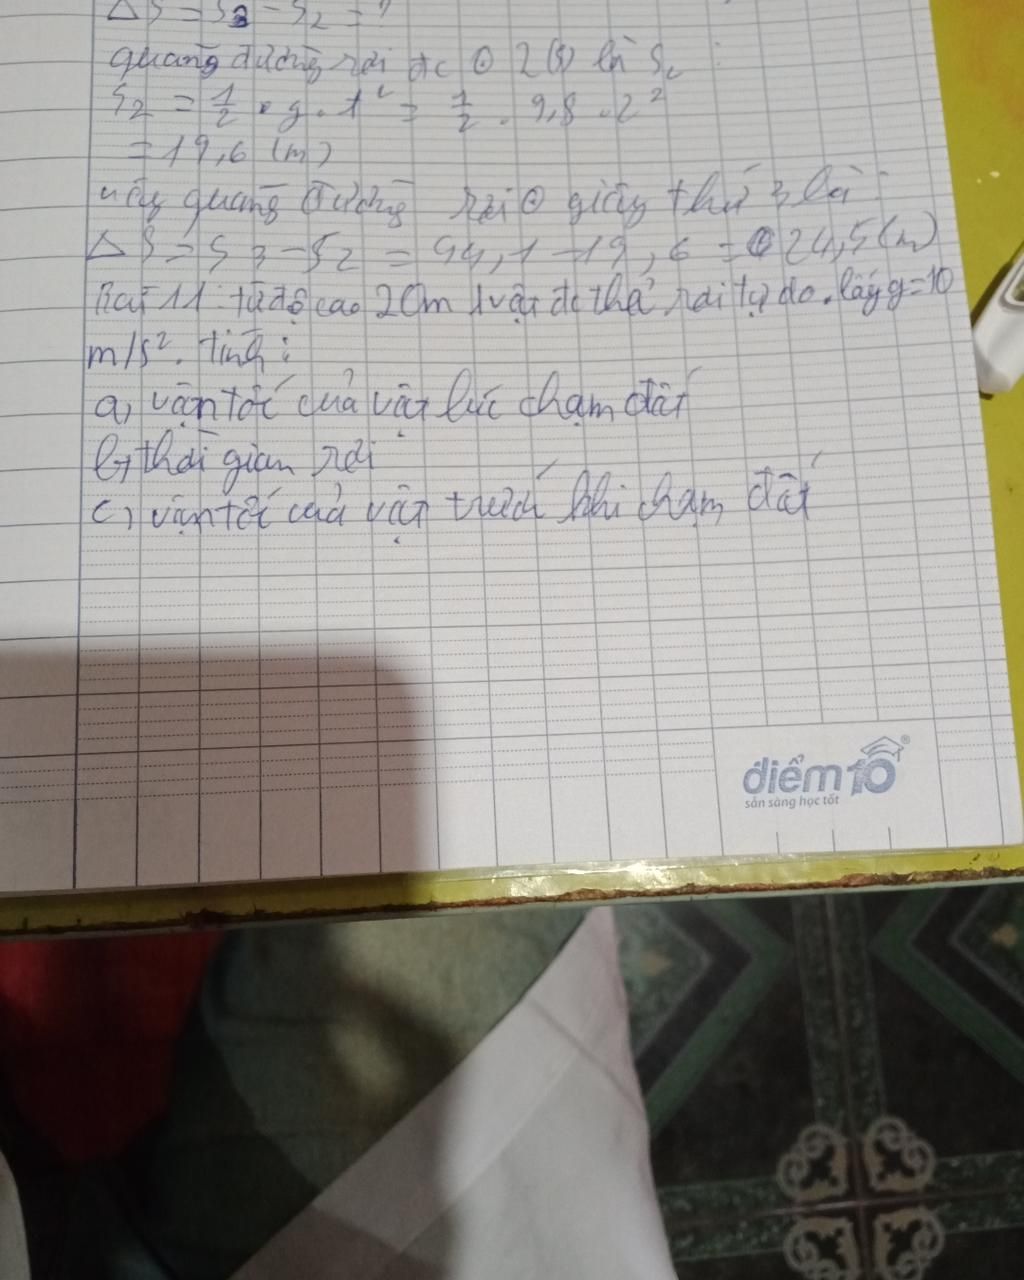 ΔS = S3 - S2 = ?
quãng đường rơi đc ⊙ 2(s) là S2 :
S2 = 1/2 . g . t² = 1/2 . 9,8 . 2²
= 19,6 (m)
vậy quãng đường rơi ⊙ giây thứ 3 là :
ΔS = S3 - S2 = 44,1 - 19,6 = 24,5 (m)
Bài 11 : từ độ cao 20m 1 vật đc thả rơi tự do. lấy g=10
m/s². tính :
a, vận tốc của vật lúc chạm đất
b, thời gian rơi
c, vận tốc của vật trước khi chạm đất
điểm 10 ®
sẵn sàng học tốt